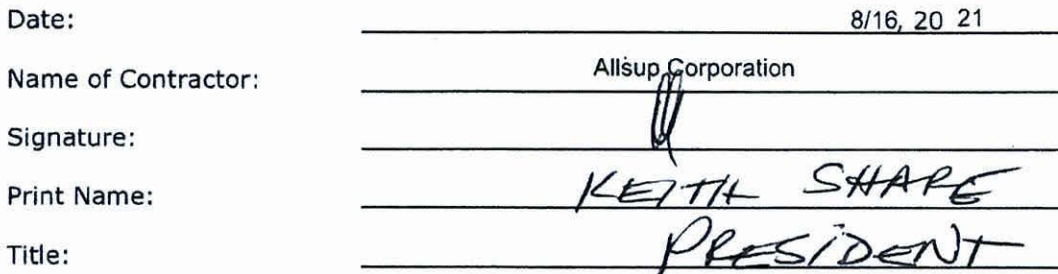 Date: 8/16, 20 21
Name of Contractor: Allsup Corporation
Signature:
Print Name: KEITH SHARE
Title: PRESIDENT